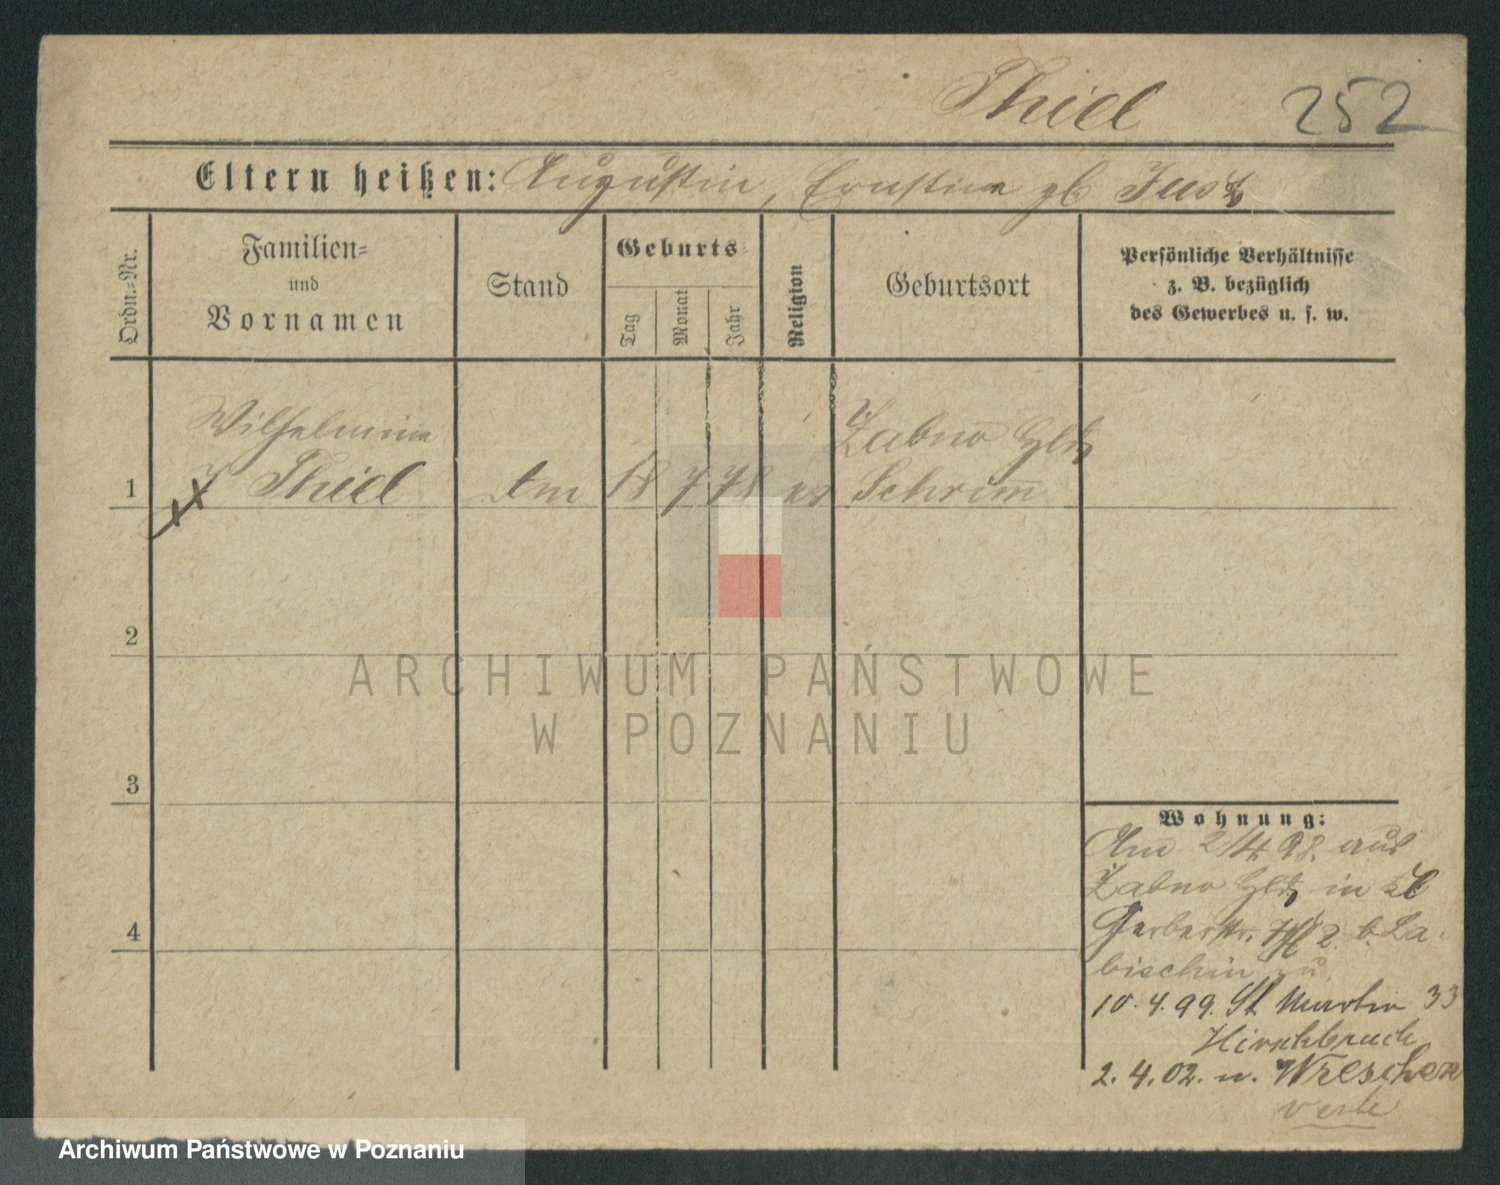 Thiel 252
Eltern heißen: Augustin, Ernstine gb Just
Ordn.-Nr.
Familien-
und
Vornamen
Stand
Geburts-
Tag
Monat
Jahr
Religion
Geburtsort
Persönliche Verhältnisse
z. B. bezüglich
des Gewerbes u. s. w.
Wilhelmine Zabno
1 Thiel 18 7 78 ev Schrimm
2
3
4
Wohnung:
Am 2/4 98. aus
Zabno in kl
Gerberstr. 2. b. La-
bischin
10. 4. 99. St Martin 33
Hirschbruch
2. 4. 02. n. Wreschen
ARCHIWUM PAŃSTWOWE
W POZNANIU
Archiwum Państwowe w Poznaniu